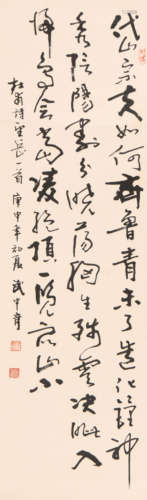 岱宗夫如何齊魯青未了造化鍾神
秀陰陽割昏曉蕩胸生層雲決眦入
歸鳥會當凌絕頂一覽众山小
杜甫詩望岳一首 庚申年初夏 武中奇